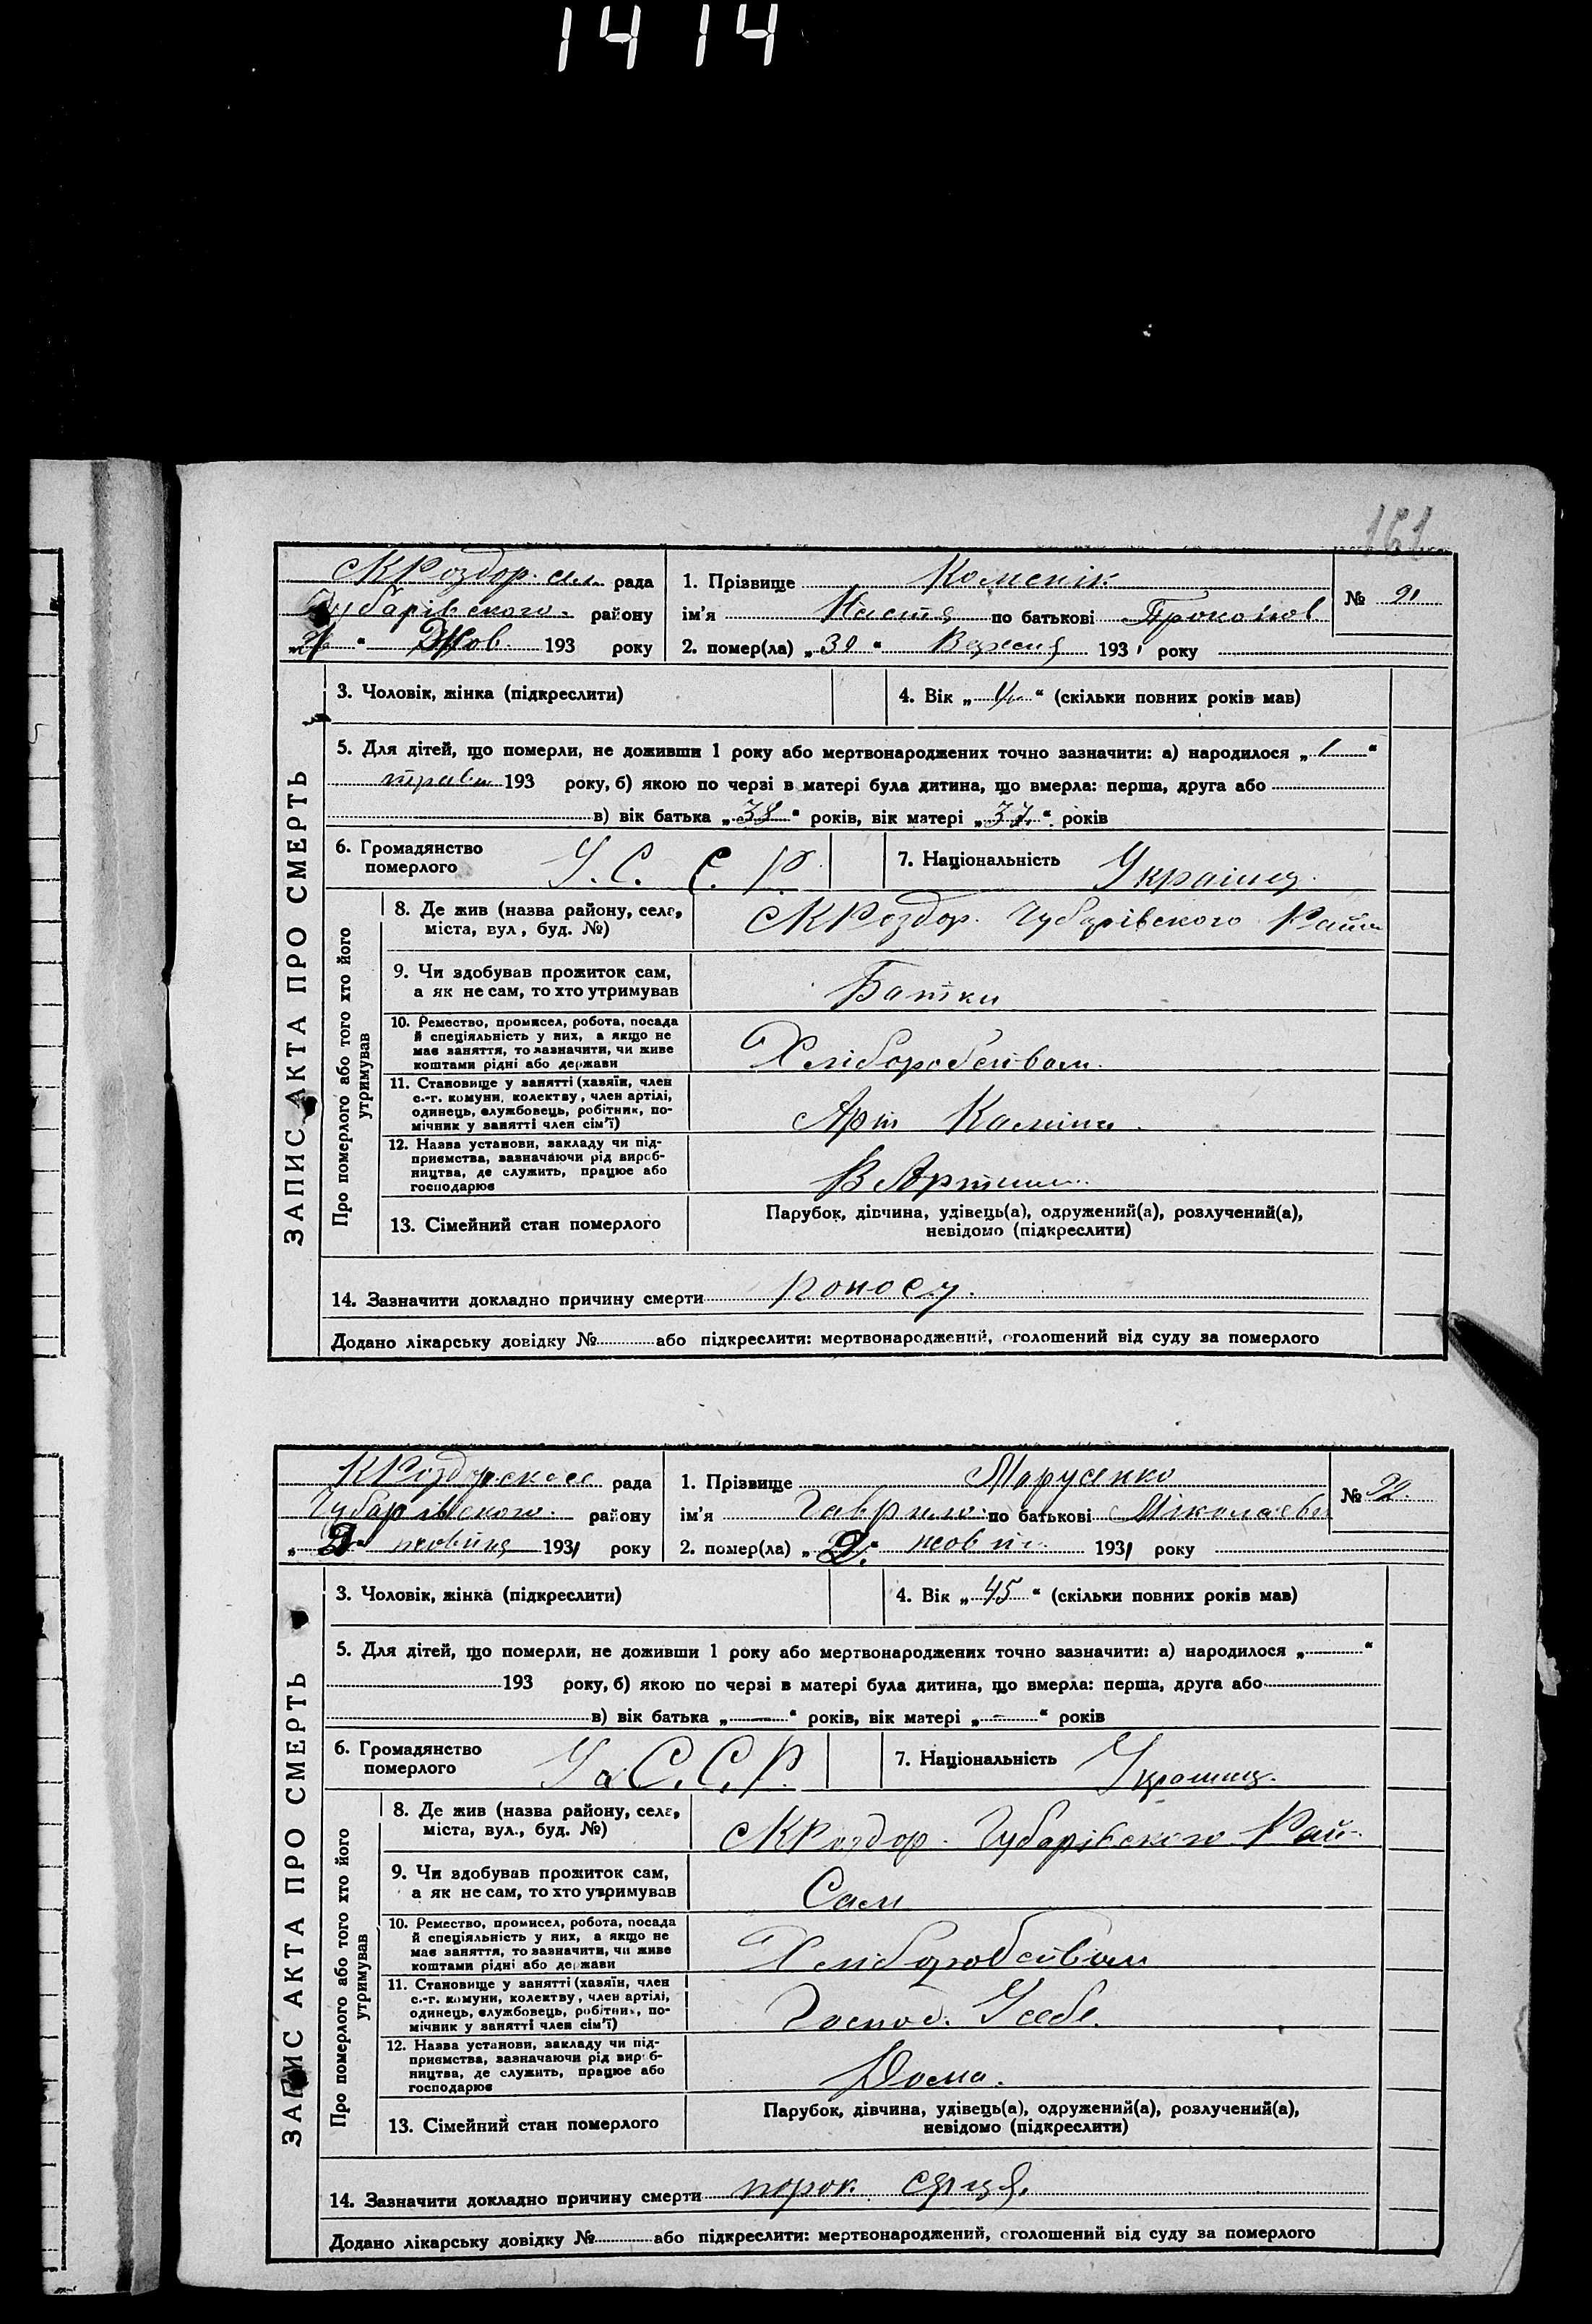 1414
161
МКРоздор. сел. рада
Чубарівського району
" Жов. 193 року
1. Прізвище
№ 91
ім'я Настя по батькові Проконов
2. помер(ла) „30" Вересня 1931 року
ЗАПИС АКТА ПРО СМЕРТЬ
3. Чоловік, жінка (підкреслити)
4. Вік „ " (скільки повних років мав)
5. Для дітей, що померли, не доживши 1 року або мертвонароджених точно зазначити: а) народилося „1"
травн 193 року, б) якою по черзі в матері була дитина, що вмерла: перша, друга або
в) вік батька „38" років, вік матері „37" років
6. Громадянство
померлого
У.С.С.Р.
7. Національність
Україна
Про померлого або того хто його
утримував
8. Де жив (назва району, села,
міста, вул., буд. №)
МКРоздор. Чубарівского Район
9. Чи здобував прожиток сам,
а як не сам, то хто утримував
Батки
10. Ремество, промисел, робота, посада
й спеціяльність у них, а якщо не
має заняття, то зазначити, чи живе
коштами рідні або держави
Хліборобством
11. Становище у занятті (хазяїн, член
с.-г. комуни, колективу, член артілі,
одинець, службовець, робітник, по-
мічник у занятті член сім'ї)
Арт
12. Назва установи, закладу чи під-
приємства, зазначаючи рід вироб-
ництва, де служить, працює або
господарює
В Артили
13. Сімейний стан померлого
Парубок, дівчина, удівець(а), одружений(а), розлучений(а),
невідомо (підкреслити)
14. Зазначити докладно причину смерти поносу.
Додано лікарську довідку № або підкреслити: мертвонароджений, оголошений від суду за померлого
КРоздорское рада
Чубарівського району
„2" жовтня 1931 року
1. Прізвище Марусенко
№ 92.
ім'я Гаврило по батькові Міколаєви
2. помер(ла) „2" жовтн 1931 року
ЗАПИС АКТА ПРО СМЕРТЬ
3. Чоловік, жінка (підкреслити)
4. Вік „45" (скільки повних років мав)
5. Для дітей, що померли, не доживши 1 року або мертвонароджених точно зазначити: а) народилося „ "
193 року, б) якою по черзі в матері була дитина, що вмерла: перша, друга або
в) вік батька „—" років, вік матері „—" років
6. Громадянство
померлого
УаС.С.Р.
7. Національність
Украинец.
Про померлого або того хто його
утримував
8. Де жив (назва району, села,
міста, вул., буд. №)
МКРоздор. Чубарівского Рай-
9. Чи здобував прожиток сам,
а як не сам, то хто утримував
Сам
10. Ремество, промисел, робота, посада
й спеціяльність у них, а якщо не
має заняття, то зазначити, чи живе
коштами рідні або держави
Хліборобством
11. Становище у занятті (хазяїн, член
с.-г. комуни, колективу, член артілі,
одинець, службовець, робітник, по-
мічник у занятті член сім'ї)
Господ. У себе.
12. Назва установи, закладу чи під-
приємства, зазначаючи рід вироб-
ництва, де служить, працює або
господарює
Дома.
13. Сімейний стан померлого
Парубок, дівчина, удівець(а), одружений(а), розлучений(а),
невідомо (підкреслити)
14. Зазначити докладно причину смерти порок серця.
Додано лікарську довідку № або підкреслити: мертвонароджений, оголошений від суду за померлого